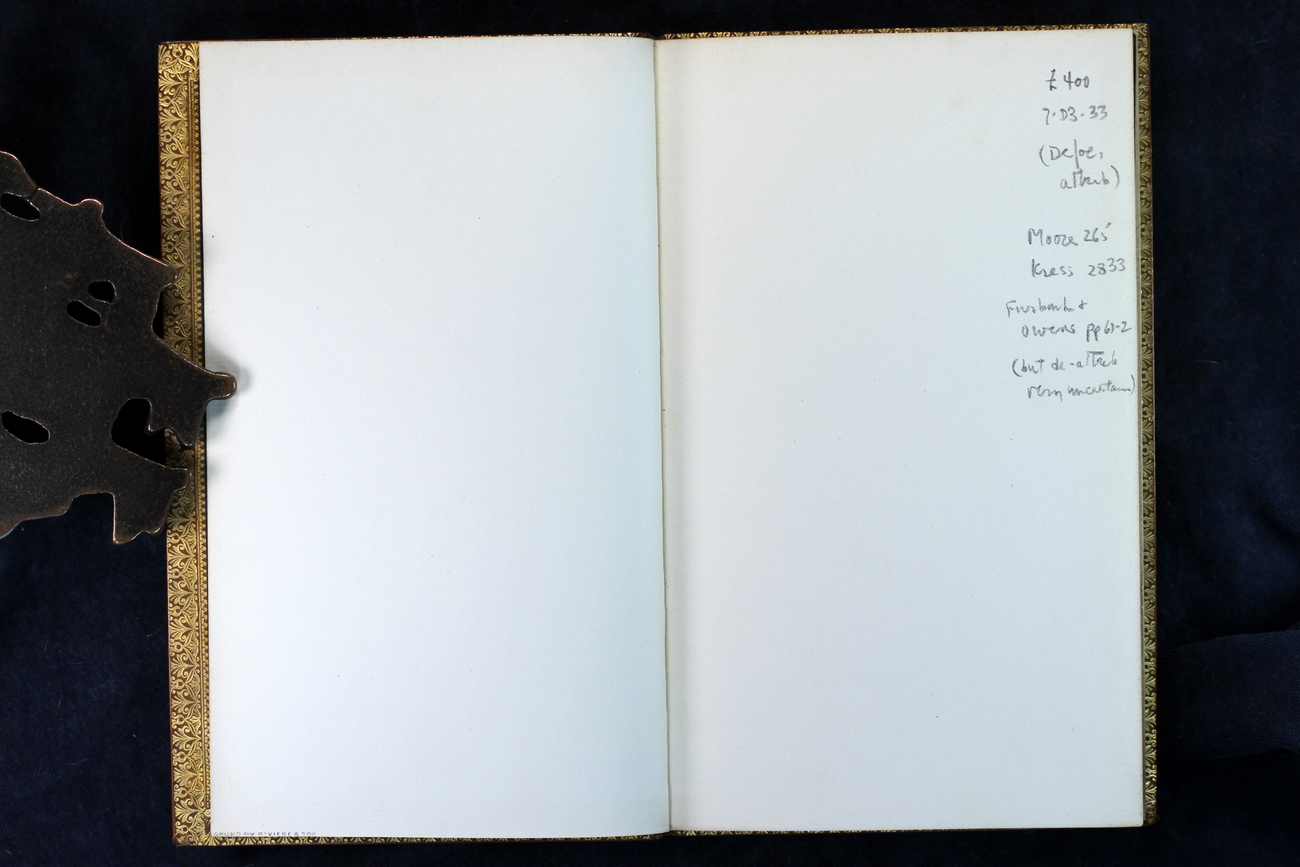 BOUND BY RIVIERE & SON
£400
7·03·33
(Defoe,
attrib)
Moore 265
Kress 2833
Furbank &
Owens pp 61-2
(but de-attrib
very uncertain)